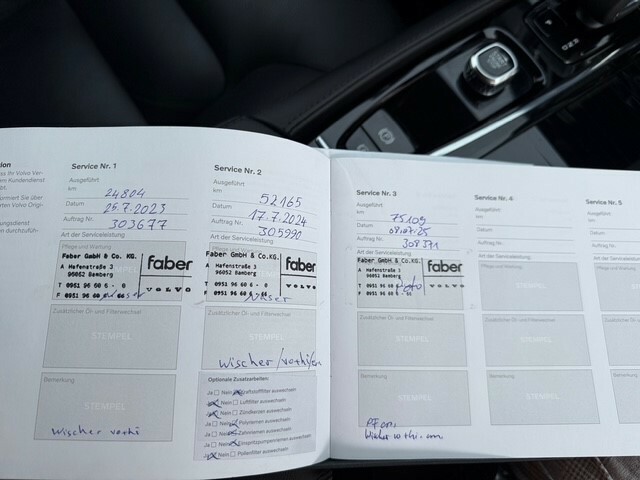 Service Nr. 1
Ausgeführt
km 24804
Datum 25.7.2023
Auftrag Nr. 303677
Art der Serviceleistung
Pflege und Wartung
Faber GmbH & Co. KG.
A Hafenstraße 3
96052 Bamberg
T 0951 96 60 6 - 0
F 0951 96 60 6 - 66
faber
VOLVO
Zusätzlicher Öl- und Filterwechsel
STEMPEL
Bemerkung
STEMPEL
Wischer
Service Nr. 2
Ausgeführt
km 52165
Datum 17.7.2024
Auftrag Nr. 305990
Art der Serviceleistung
Pflege und Wartung
Faber GmbH & Co. KG.
A Hafenstraße 3
96052 Bamberg
T 0951 96 60 6 - 0
F 0951 96 60 6 - 66
faber
VOLVO
Zusätzlicher Öl- und Filterwechsel
STEMPEL
Wischer
Optionale Zusatzarbeiten:
Ja Nein Kraftstofffilter auswechseln
Ja Nein Luftfilter auswechseln
Ja Nein Zündkerzen auswechseln
Ja Nein Polyriemen auswechseln
Ja Nein Zahnriemen auswechseln
Ja Nein auswechseln
Ja Nein Pollenfilter auswechseln
Service Nr. 3
Ausgeführt
km 75109
Datum 08.07.25
Auftrag Nr. 308371
Art der Serviceleistung
Faber GmbH & Co. KG.
A Hafenstraße 3
96052 Bamberg
T 0951 96 60 6 - 0
F 0951 96 60 6 - 66
faber
VOLVO
Zusätzlicher Öl- und Filterwechsel
Bemerkung
Service Nr. 4
Ausgeführt
km
Datum
Auftrag Nr.
Art der Serviceleistung
Pflege und Wartung
Zusätzlicher Öl- und Filterwechsel
Bemerkung
Service Nr. 5
Ausgeführt
km
Datum
Auftrag Nr.